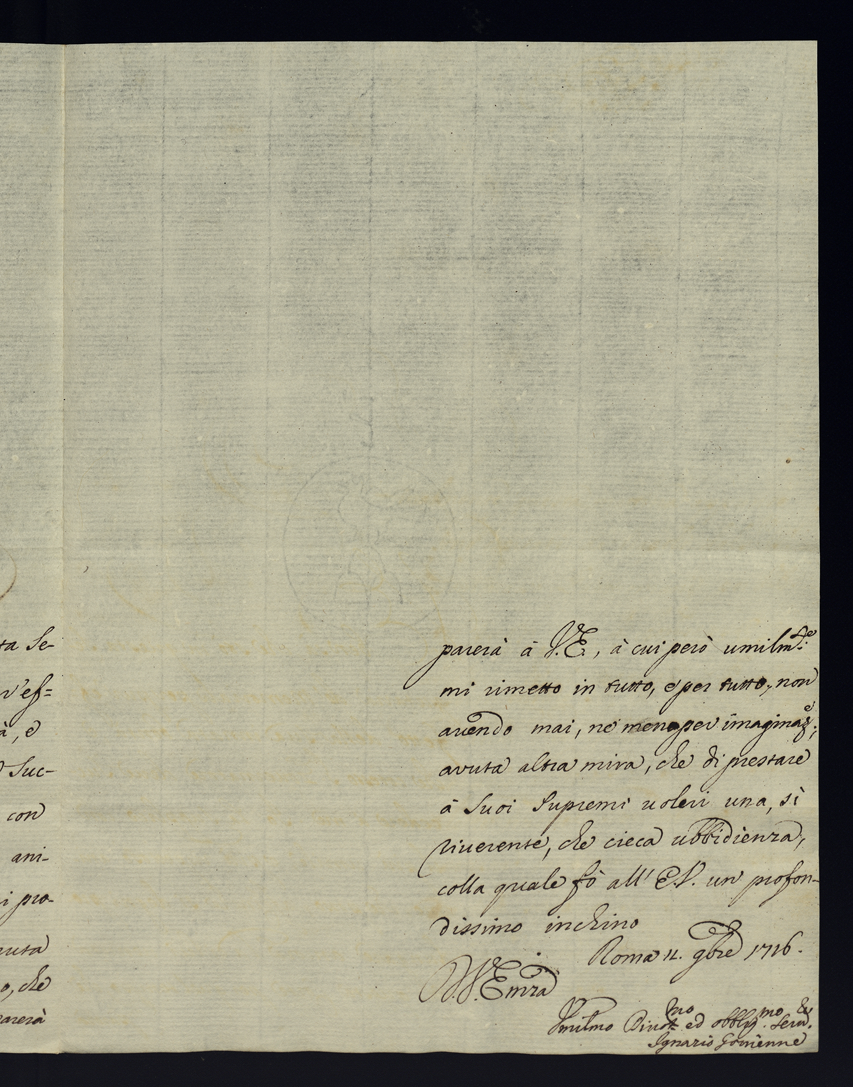 ta Se-
r'ess=
à, e
Suc-
con
ani-
i pro-
auuta
o, che
parerà
parerà à V.E., à cui però umilm.te
mi rimetto in tutto, e per tutto, non
auendo mai, ne meno per imaginaz.e,
avuta altra mira, che di prestare
à Suoi Supremi uoleri una, sì
riuerente, che cieca ubbidienza,
colla quale fò all' E.V. un profon-
dissimo inchino
Roma 11. 9bre 1716.
D.V. Emza
Umilmo Diuotmo ed obblgmo Serv.
Ignazio